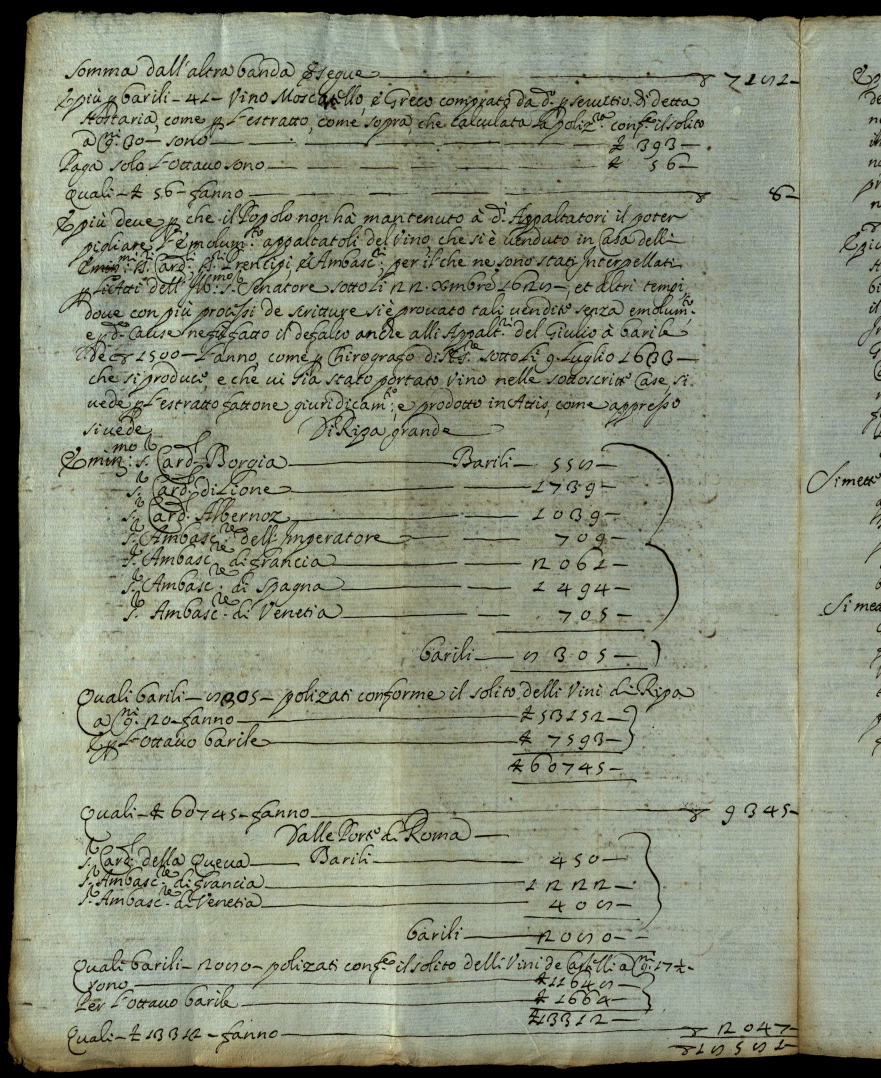 Somma dall'altra banda e segue — ▽ 7181 —
E più p barili — 41 — Vino Moscatello, e Greco comprato da d.i p servitio di detta
Hostaria, come p l'estratto, come sopra che calculata la poliz.ra conf.e il solito
a q.ni 30 — sono — ₺ 393 —
Paga solo l'ottavo sono — ₺ 56 —
Quali — ₺ 56 — fanno — ▽ 8 —
E più deve p che il Popolo non ha mantenuto à d.i Appaltatori il poter
pigliare l'emolum.to appaltatoli del Vino, che si è venduto in Casa delli
Emin.mi SS. Card.li SS. Prencipi, e Ambasc.ri per il che ne sono stati interpellati
p li Atti dell'Ill.mo S. Senatore sotto li 22 Xmbre 1628 —, et altri tempi
dove con più processi de scritture si è provato tali vendite senza emolum.to
e p d.e Cause n'egl. fatto il defalco anche alli Appalt.ri del Giulio à barile
de ▽ 1500 — l'anno, come p Chirografo di N. S.re sotto li 9 Luglio 1633 —
che si produce, e che vi sia stato portato Vino nelle sottoscritte Case, si
vede p l'estratto fattone giuridicam.te, e prodotto in Attis, come appresso
si vede Di Ripa grande —
Emin.mo S.r Card.l Borgia — Barili — 558 —
S.r Card.l di Lione — 1739 —
S.r Card.l Albernoz — 1039 —
S.r Ambasc.re dell'Imperatore — 709 —
S.r Ambasc.re di Francia — 2061 —
S.r Ambasc.re di Spagna — 1494 —
S.r Ambasc.re di Venetia — 705 —
barili — 8305 —
Quali barili — 8305 — polizati conforme il solito delli Vini di Ripa
a q.ni 20 — fanno — ₺ 53152 —
E p l'ottavo barile — ₺ 7593 —
₺ 60745 —
Quali — ₺ 60745 — fanno — ▽ 9345 —
Dalle Porte di Roma —
S.r Card.l della Queva — Barili — 450 —
S.r Ambasc.re di Francia — 1222 —
S.r Ambasc.re di Venetia — 408 —
barili — 2080 —
Quali barili — 2080 — polizati conf.e il solito delli Vini de Castelli a q.ni 17 ½ —
sono — ₺ 11648 —
Per l'ottavo barile — ₺ 1664 —
₺ 13312 —
Quali — ₺ 13312 — fanno — ▽ 2047 —
▽ 18581 —